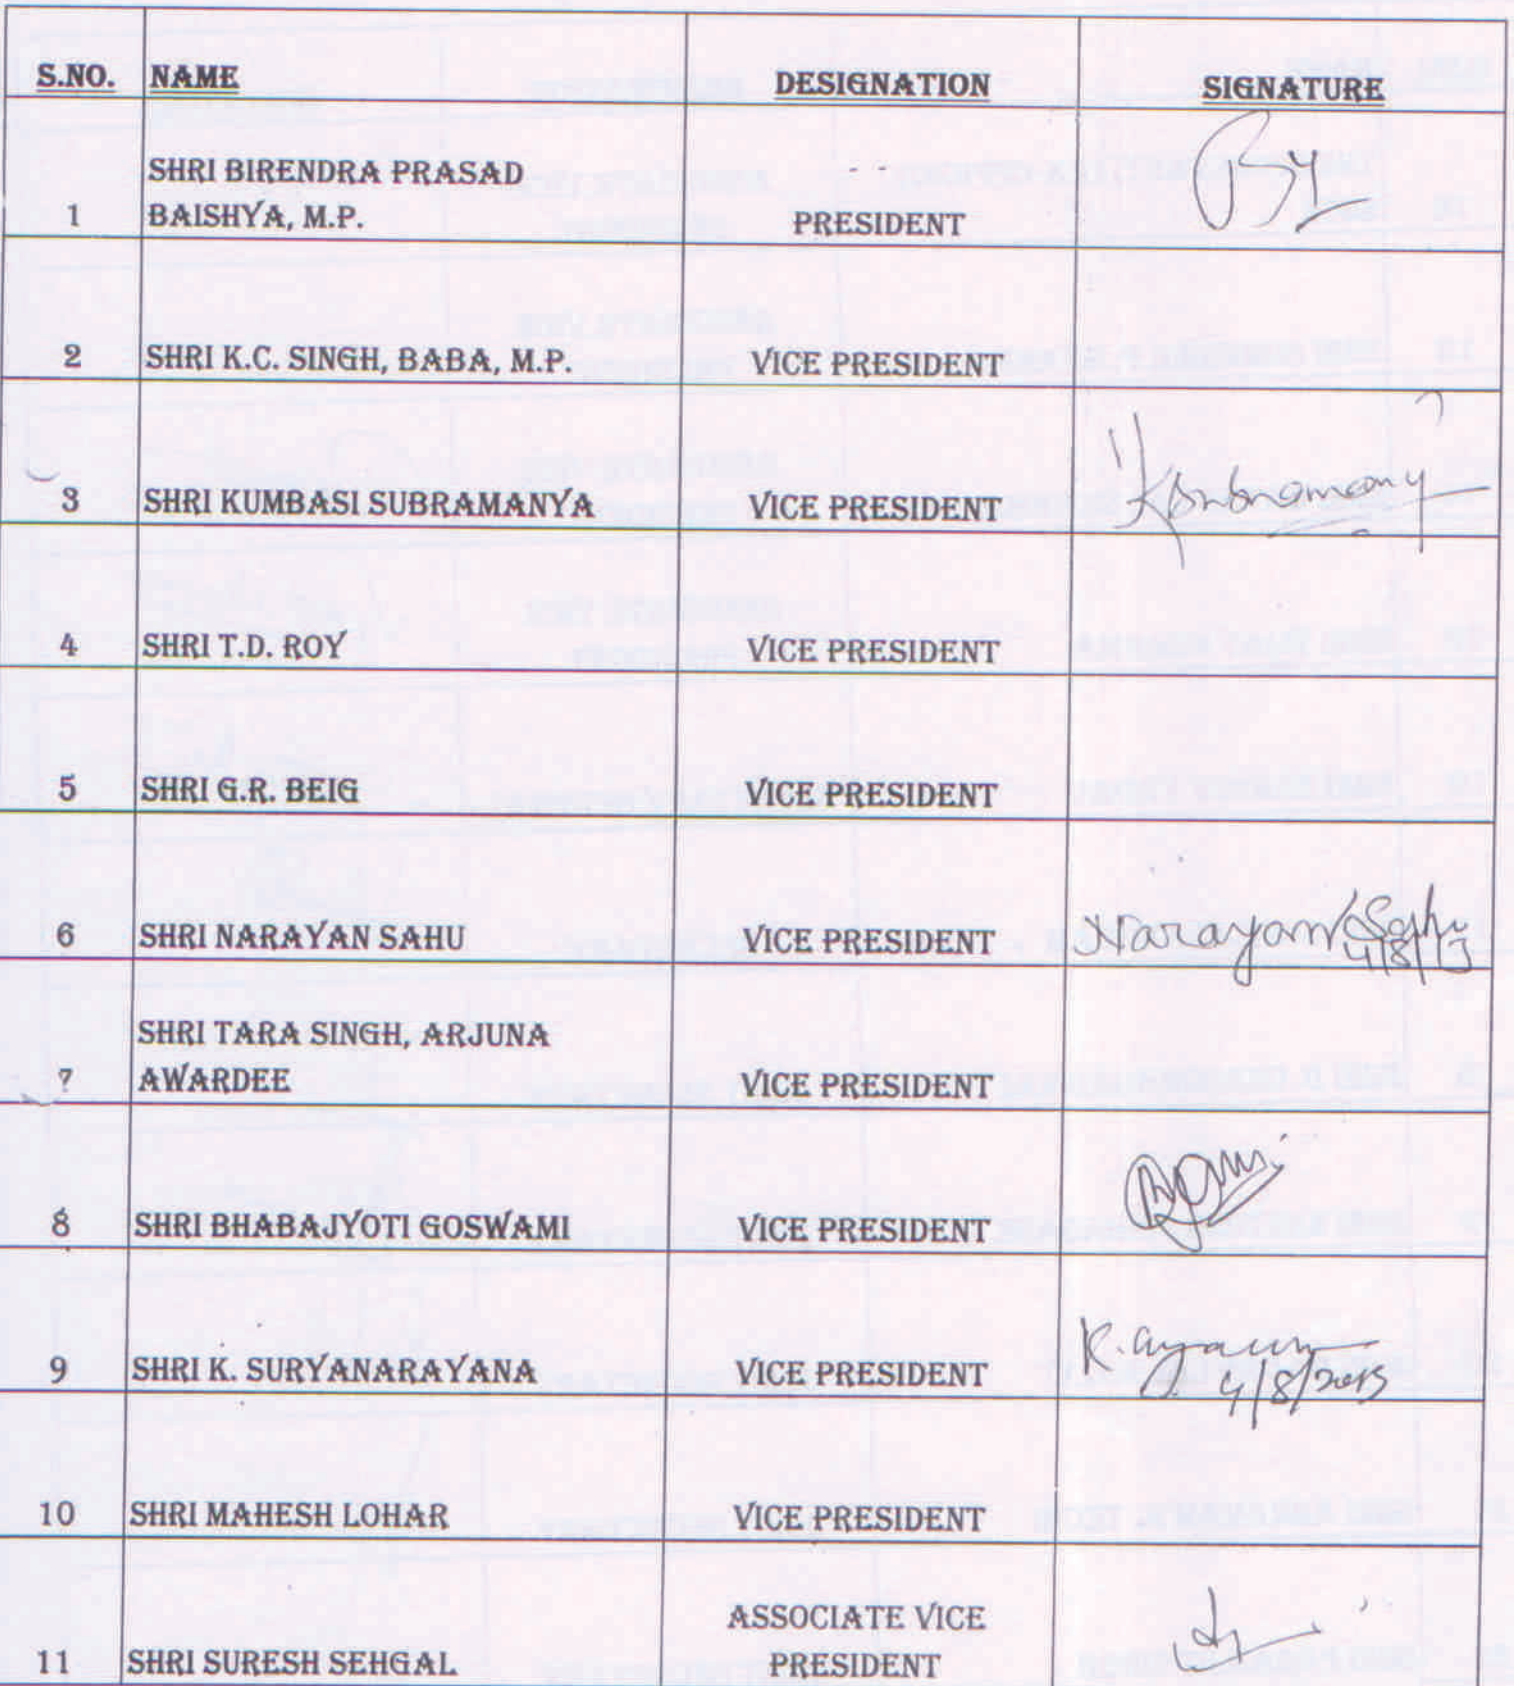 S.NO. NAME DESIGNATION SIGNATURE
SHRI BIRENDRA PRASAD
1 BAISHYA, M.P. PRESIDENT
2 SHRI K.C. SINGH, BABA, M.P. VICE PRESIDENT
3 SHRI KUMBASI SUBRAMANYA VICE PRESIDENT
4 SHRI T.D. ROY VICE PRESIDENT
5 SHRI G.R. BEIG VICE PRESIDENT
6 SHRI NARAYAN SAHU VICE PRESIDENT Narayan Sahu
4/8/13
SHRI TARA SINGH, ARJUNA
7 AWARDEE VICE PRESIDENT
8 SHRI BHABAJYOTI GOSWAMI VICE PRESIDENT
9 SHRI K. SURYANARAYANA VICE PRESIDENT
4/8/2013
10 SHRI MAHESH LOHAR VICE PRESIDENT
ASSOCIATE VICE
11 SHRI SURESH SEHGAL PRESIDENT